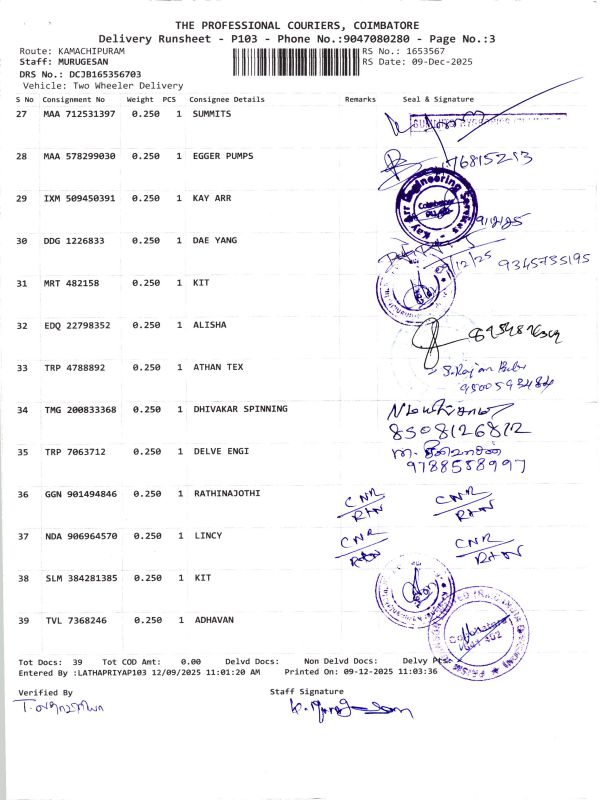 THE PROFESSIONAL COURIERS, COIMBATORE
Delivery Runsheet - P103 - Phone No.:9047080280 - Page No.:3
Route: KAMACHIPURAM RS No.: 1653567
Staff: MURUGESAN RS Date: 09-Dec-2025
DRS No.: DCJB165356703
Vehicle: Two Wheeler Delivery
S No Consignment No Weight PCS Consignee Details Remarks Seal & Signature
27 MAA 712531397 0.250 1 SUMMITS
28 MAA 578299030 0.250 1 EGGER PUMPS
29 IXM 509450391 0.250 1 KAY ARR
Kay Arr Engineering Services
Coimbatore
9/12/25
30 DDG 1226833 0.250 1 DAE YANG
9345735195
31 MRT 482158 0.250 1 KIT
32 EDQ 22798352 0.250 1 ALISHA
33 TRP 4788892 0.250 1 ATHAN TEX
34 TMG 200833368 0.250 1 DHIVAKAR SPINNING
8508126812
35 TRP 7063712 0.250 1 DELVE ENGI
9788558997
36 GGN 901494846 0.250 1 RATHINAJOTHI CNR CNR
RTN RTN
37 NDA 906964570 0.250 1 LINCY CNR CNR
RTN RTN
38 SLM 384281385 0.250 1 KIT
39 TVL 7368246 0.250 1 ADHAVAN
Tot Docs: 39 Tot COD Amt: 0.00 Delvd Docs: Non Delvd Docs: Delvy Pts:
Entered By :LATHAPRIYAP103 12/09/2025 11:01:20 AM Printed On: 09-12-2025 11:03:36
Verified By Staff Signature